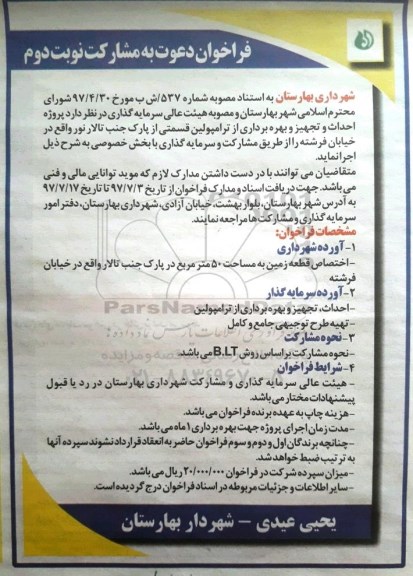 فراخوان دعوت به مشارکت نوبت دوم
شهرداری بهارستان به استناد مصوبه شماره ۵۳۷/ش ب مورخ ۹۷/۴/۳۰ شورای
محترم اسلامی شهر بهارستان و مصوبه هیئت عالی سرمایه گذاری در نظر دارد پروژه
احداث و تجهیز و بهره برداری از ترامپولین قسمتی از پارک جنب تالار نور واقع در
خیابان فرشته را از طریق مشارکت و سرمایه گذاری با بخش خصوصی به شرح ذیل
اجرا نماید.
متقاضیان می توانند با در دست داشتن مدارک لازم که موید توانایی مالی و فنی
می باشد. جهت دریافت اسناد و مدارک فراخوان از تاریخ ۹۷/۷/۳ تا تاریخ ۹۷/۷/۱۷
به آدرس شهر بهارستان، بلوار بهشت، خیابان آزادی، شهرداری بهارستان، دفتر امور
سرمایه گذاری و مشارکت ها مراجعه نمایند.
مشخصات فراخوان:
۱- آورده شهرداری
-اختصاص قطعه زمین به مساحت ۵۰ متر مربع در پارک جنب تالار واقع در خیابان
فرشته
۲-آورده سرمایه گذار
-احداث، تجهیز و بهره برداری از ترامپولین
-تهیه طرح توجیهی جامع و کامل
۳- نحوه مشارکت
-نحوه مشارکت بر اساس روش B.LT می باشد.
۴- شرایط فراخوان
- هیئت عالی سرمایه گذاری و مشارکت شهرداری بهارستان در رد یا قبول
پیشنهادات مختار می باشد.
-هزینه چاپ به عهده برنده فراخوان می باشد.
-مدت زمان اجرای پروژه جهت بهره برداری ۱ ماه می باشد.
-چنانچه برندگان اول و دوم و سوم فراخوان حاضر به انعقاد قرارداد نشوند سپرده آنها
به ترتیب ضبط خواهد شد.
-میزان سپرده شرکت در فراخوان ۲۰/۰۰۰/۰۰۰ ریال می باشد.
-سایر اطلاعات و جزئیات مربوطه در اسناد فراخوان درج گردیده است.
یحیی عیدی - شهردار بهارستان